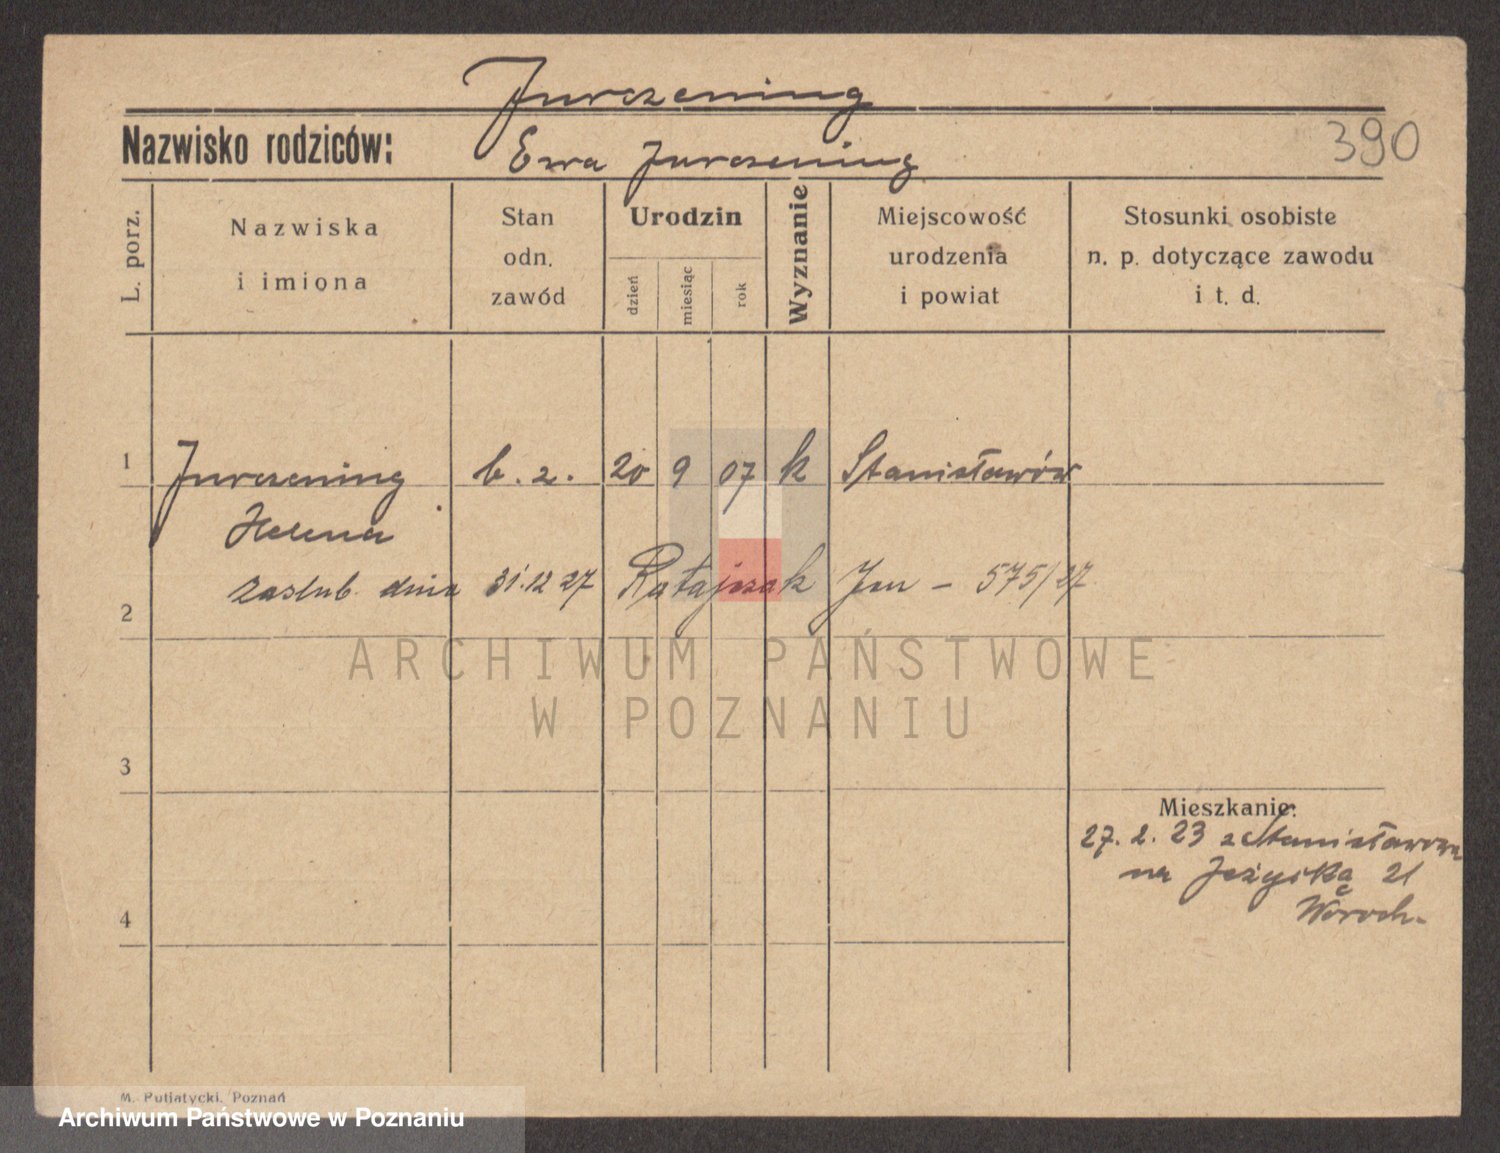 Jurczening
Nazwisko rodziców: Ewa Jurczening
390
L. porz.
Nazwiska
i imiona
Stan
odn.
zawód
Urodzin
dzień
miesiąc
rok
Wyznanie
Miejscowość
urodzenia
i powiat
Stosunki osobiste
n. p. dotyczące zawodu
i t. d.
1 Jurczening b. z. 20 9 07 k Stanisławów
Helena
2 zaślub. dnia 31.12 27 Ratajczak Jan - 575/27
ARCHIWUM PAŃSTWOWE
W POZNANIU
3
Mieszkanie:
27. 2. 23 z Stanisławowa
na Jeżycką 21
4
M. Putiatycki, Poznań
Archiwum Państwowe w Poznaniu